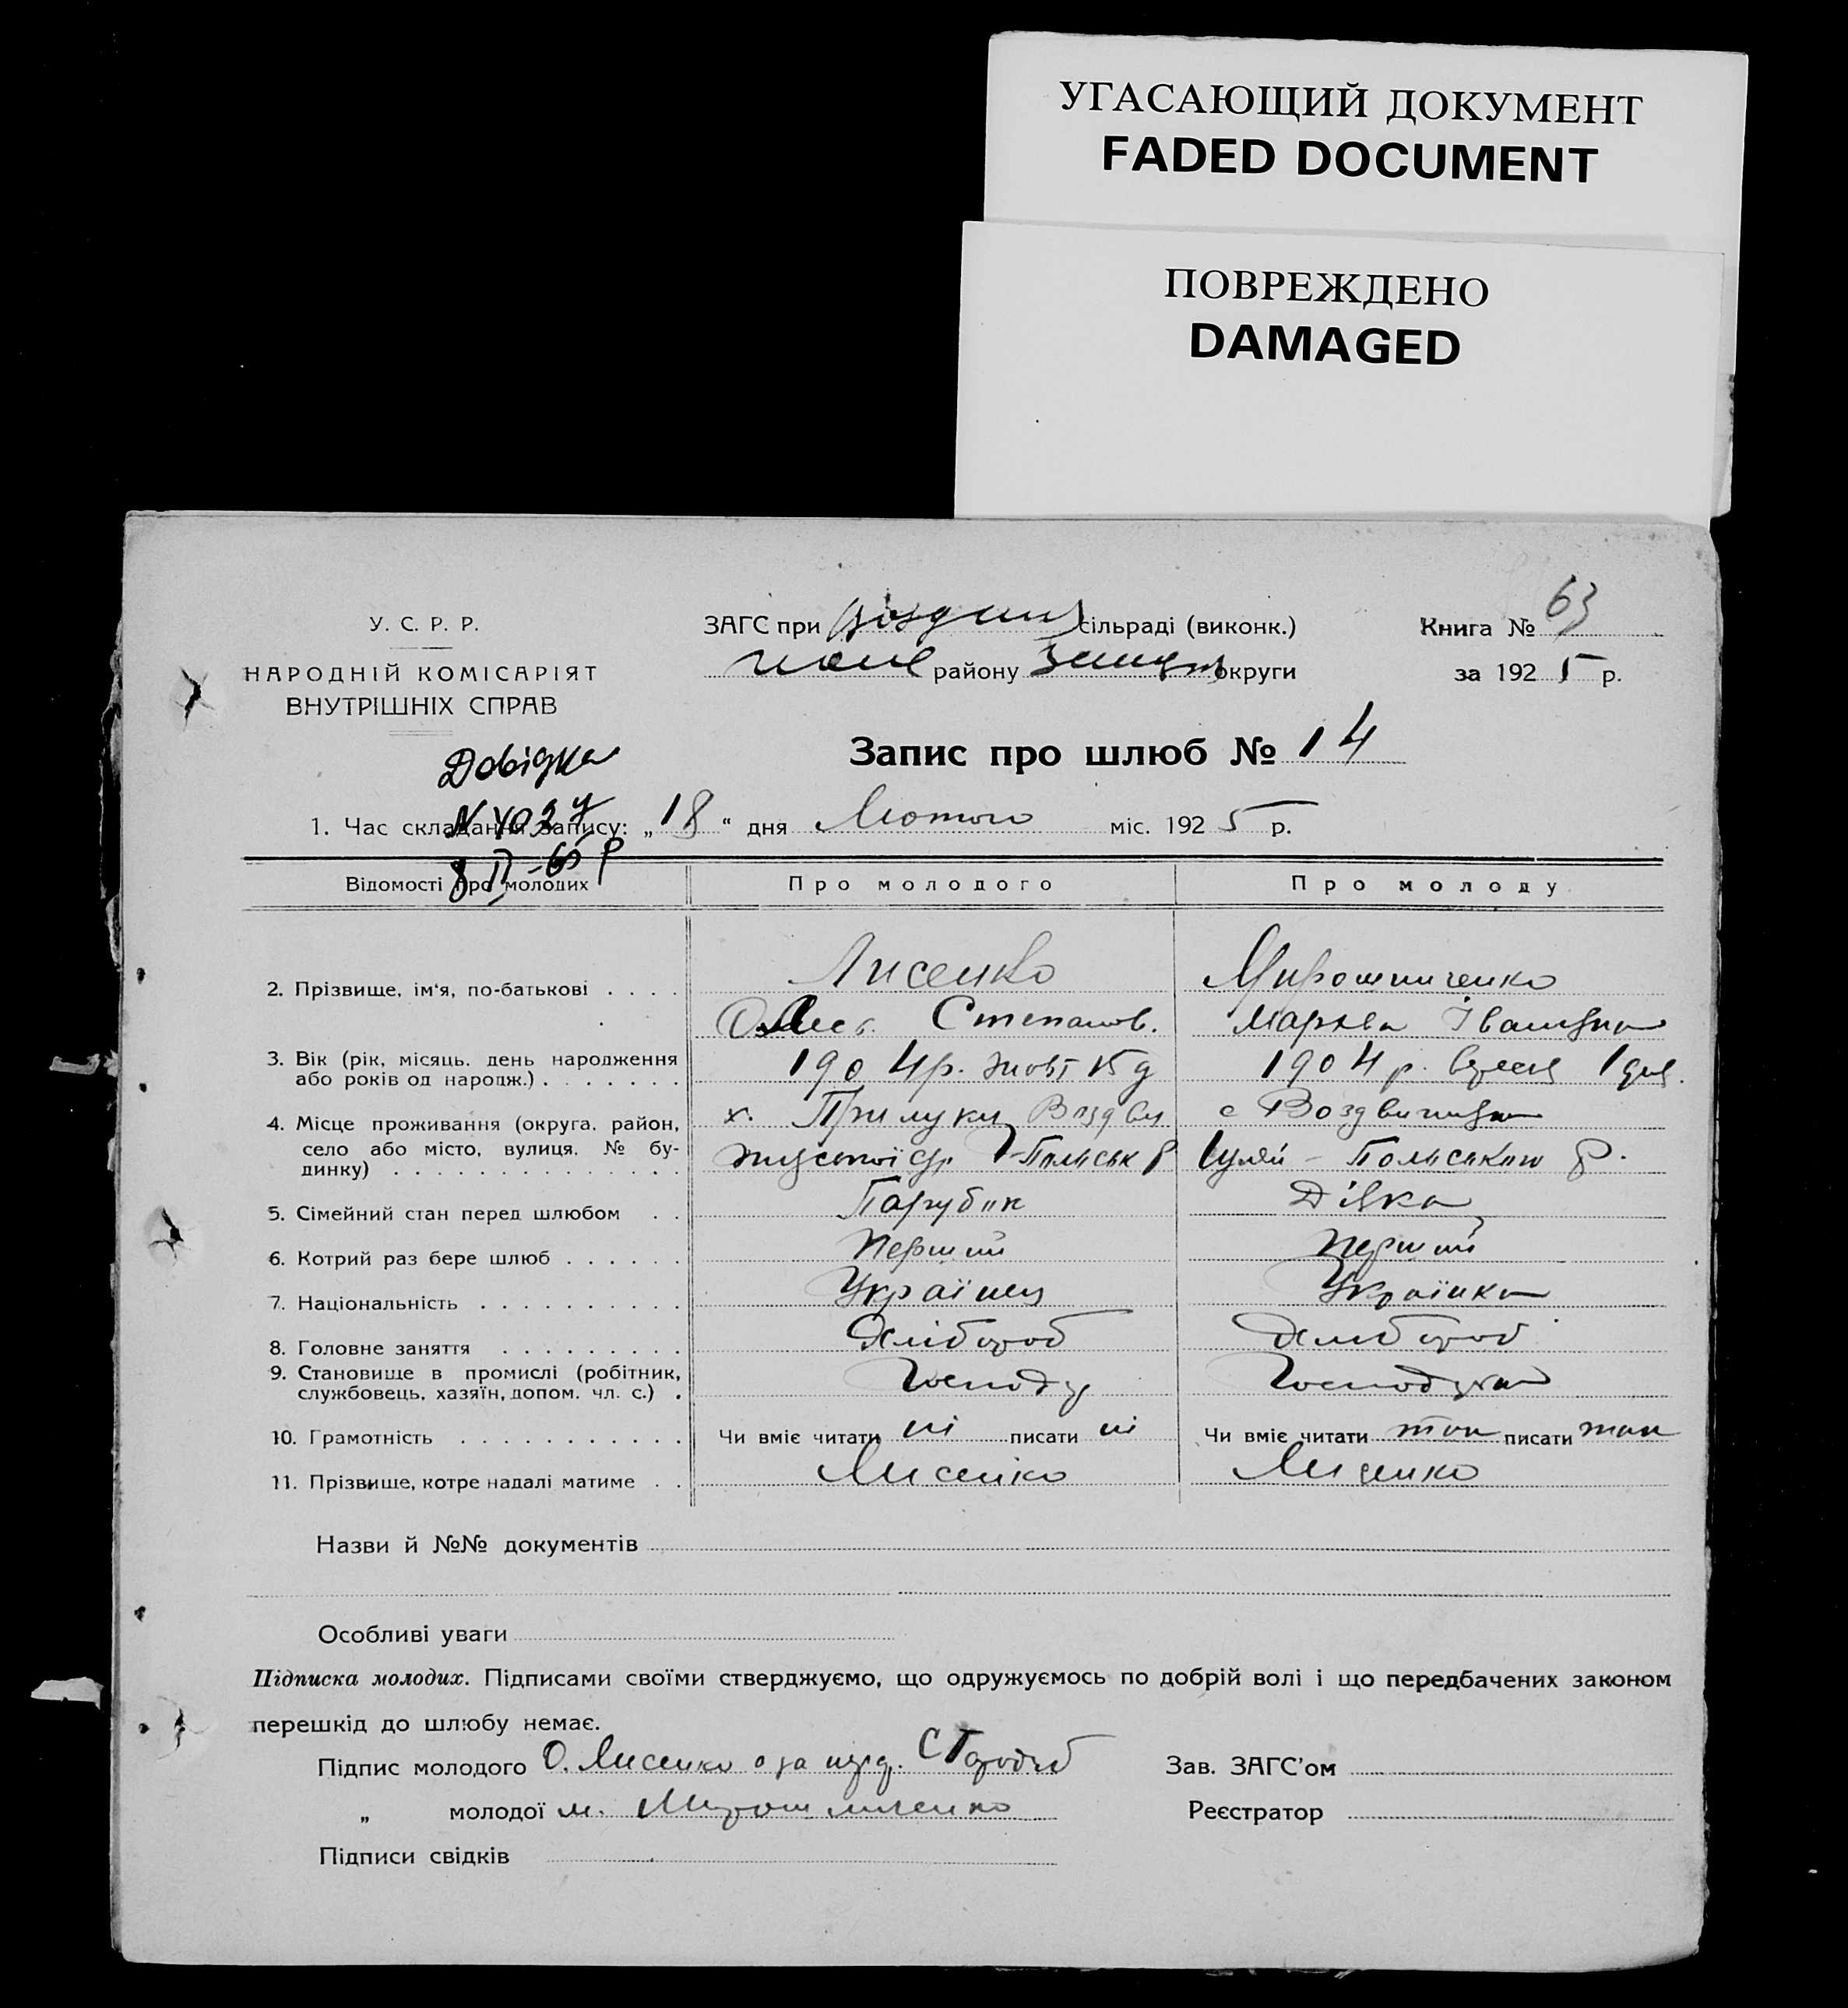 УГАСАЮЩИЙ ДОКУМЕНТ
FADED DOCUMENT
ПОВРЕЖДЕНО
DAMAGED
У. С. Р. Р.
НАРОДНІЙ КОМІСАРІЯТ
ВНУТРІШНІХ СПРАВ
ЗАГС при сільраді (виконк.)
району округи
Книга № 63
за 192 5 р.
Довідка
N 4027
8 II-65 р
Запис про шлюб № 14
1. Час складання запису: „ 18 “ дня Лютого міс. 192 5 р.
Відомості про молодих
Про молодого
Про молоду
2. Прізвище, ім‘я, по-батькові . . . .
Лисенко
Степанов.
Мирошниченко
Іванівна
3. Вік (рік, місяць, день народження
або років од народж.) . . . . . . .
1904р. жовт 15 д
1904 р. 1 дня.
4. Місце проживання (округа, район,
село або місто, вулиця, № бу-
динку) . . . . . . . . . . . . . .
х. Прилуки Воздви
жуської Г-Польськ р
с Воздвижівка
Гуляй - Польського р.
5. Сімейний стан перед шлюбом . .
Парубок
Дівка
6. Котрий раз бере шлюб . . . . . .
Перший
Перший
7. Національність . . . . . . . . . .
Українец
Українка
8. Головне заняття . . . . . . . . .
Хлібороб
Хлібороб
9. Становище в промислі (робітник,
службовець, хазяїн, допом. чл. с.) .
Господ
10. Грамотність . . . . . . . . . . .
Чи вміє читати ні писати ні
Чи вміє читати так писати так
11. Прізвище, котре надалі матиме . .
Лисенко
Лисенко
Назви й №№ документів
Особливі уваги
Підписка молодих. Підписами своїми стверджуємо, що одружуємось по добрій волі і що передбачених законом
перешкід до шлюбу немає.
Підпис молодого О. Лисенко
„ молодої М. Мирошниченко
Підписи свідків
Зав. ЗАГС’ом
Реєстратор